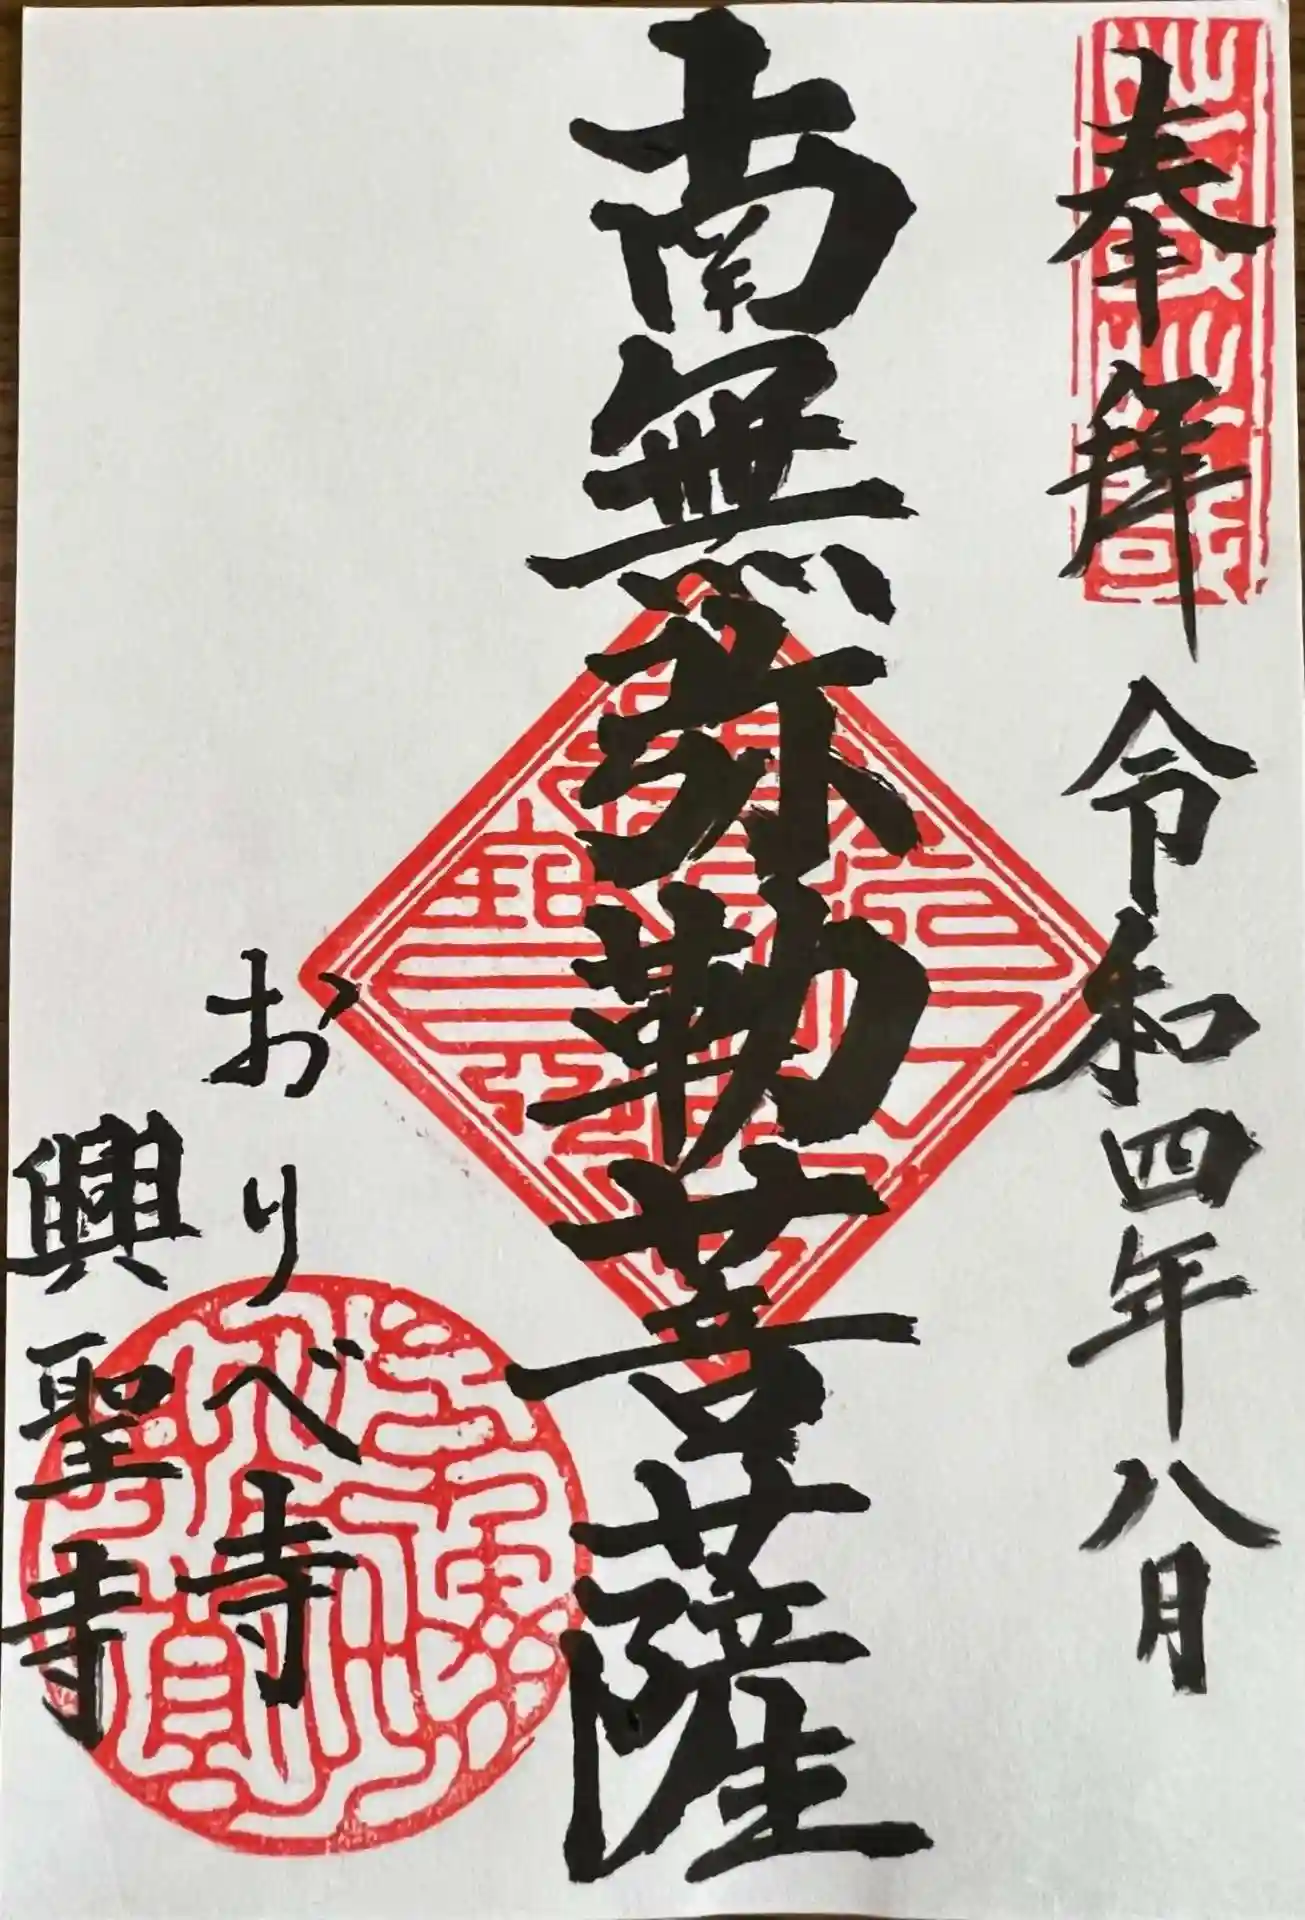 奉拝 令和四年八月
南無弥勒菩薩
おりべ寺
興聖寺